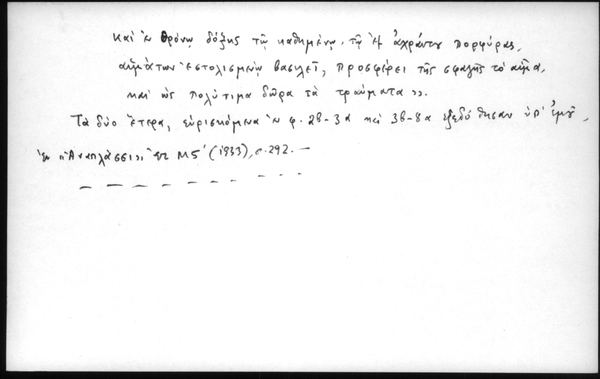 καὶ ἐν θρόνῳ δόξης τῷ καθημένῳ, τῷ ἐξ ἀχράντου πορφύρας,
αἱμάτων ἐστολισμένῳ βασιλεῖ, προσφέρει τῆς σφαγῆς τὸ αἷμα,
καὶ ὡς πολύτιμα δῶρα τὰ τραύματα».
Τὰ δύο ἕτερα, εὑρισκόμενα ἐν φ. 2β-3α καὶ 3β-8α ἐξεδόθησαν ὑπ' ἐμοῦ,
ἐν «Ἀναπλάσει», ἔτ. ΜΣ' (1933), σ. 292. —